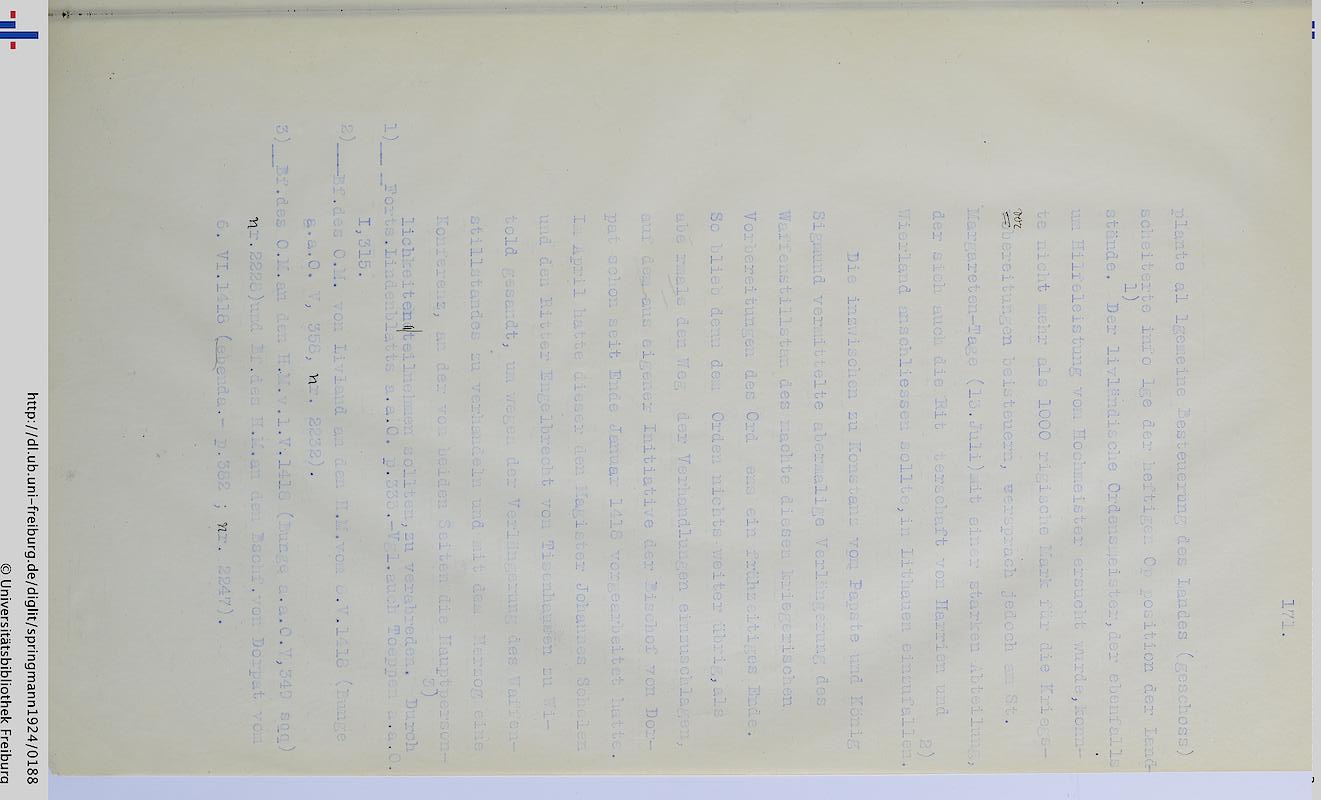 171.
plante al lgemeine Besteuerung des Landes (geschoss)
scheiterte info lge der heftigen Op position der Land-
1)
stände. Der livländische Ordensmeister, der ebenfalls
um Hilfeleistung vom Hochmeister ersucht wurde, konn-
te nicht mehr als 1000 rigische Mark für die Kriegs-
vor
bereitungen beisteuern, versprach jedoch am St.
Margareten-Tage (13.Juli) mit einer starken Abteilung,
der sich auch die Rit terschaft von Harrien und
2)
Wierland anschliessen sollte, in Lithauen einzufallen.
Die inzwischen zu Konstanz vom Papste und König
Sigmund vermittelte abermalige Verlängerung des
Waffenstillstan des machte diesen kriegerischen
Vorbereitungen des Ord ens ein frühzeitiges Ende.
So blieb denn dem Orden nichts weiter übrig, als
abe rmals den Weg der Verhandlungen einzuschlagen,
auf dem aus eigener Initiative der Bischof von Dor-
pat schon seit Ende Januar 1418 vorgearbeitet hatte.
Im April hatte dieser den Magister Johannes Schelen
und den Ritter Engelbrecht von Tisenhausen zu Wi-
told gesandt, um wegen der Verlängerung des Waffen-
stillstandes zu verhandeln und mit dem Herzog eine
Konferenz, an der von beiden Seiten die Hauptperson-
3)
lichkeiten teilnehmen sollten, zu verabreden. Durch
1) Forts.Lindenblatts a.a.O. p.333.-Vgl.auch Toeppen a.a.O.
I,315.
2) Bf.des O.M. von Livland an den H.M.vom .V.1418 (Bunge
a.a.O. V, 358, nr. 2232).
3) Bf.des O.M.an den H.M.v.1.V.1418 (Bunge a.a.O.V,349 sqq)
nr.2228) und Bf.des H.M.an den Bschf.von Dorpat vom
6. VI.1418 (ebenda.- p.382 ; nr. 2247).
http://dl.ub.uni-freiburg.de/diglit/springmann1924/0188
© Universitätsbibliothek Freiburg